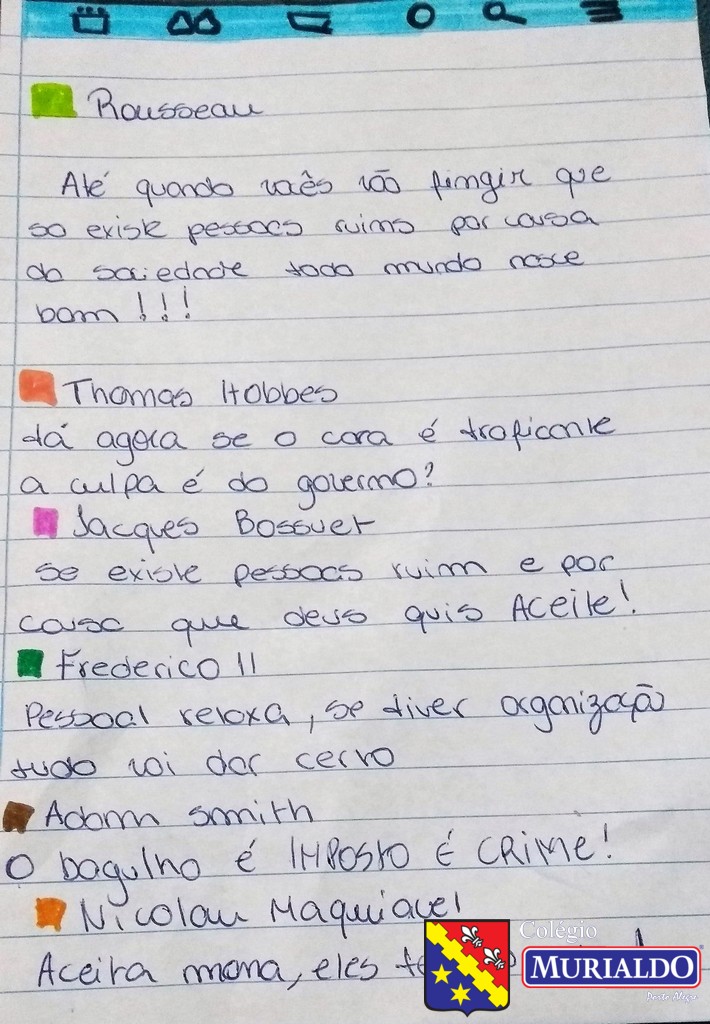 Rousseau
Até quando vocês vão fimgir que
so existe pessoas ruims por causa
da sociedade todo mundo nasce
bom!!!
Thomas Hobbes
tá agora se o cara é traficante
a culpa é do governo?
Jacques Bossuet
se existe pessoas ruim e por
causa que deus quis ACeite!
Frederico II
Pessoal relaxa, se tiver organização
tudo vai dar certo
Adam smith
O bagulho é IMPOSTO É CRIME!
Nicolau Maquiavel
Aceita mona, eles
Colégio
MURIALDO
Porto Alegre